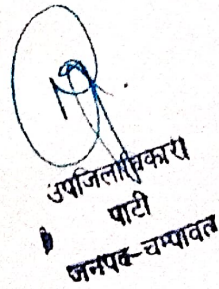 उपजिलाधिकारी
पाटी
जनपद-चम्पावत